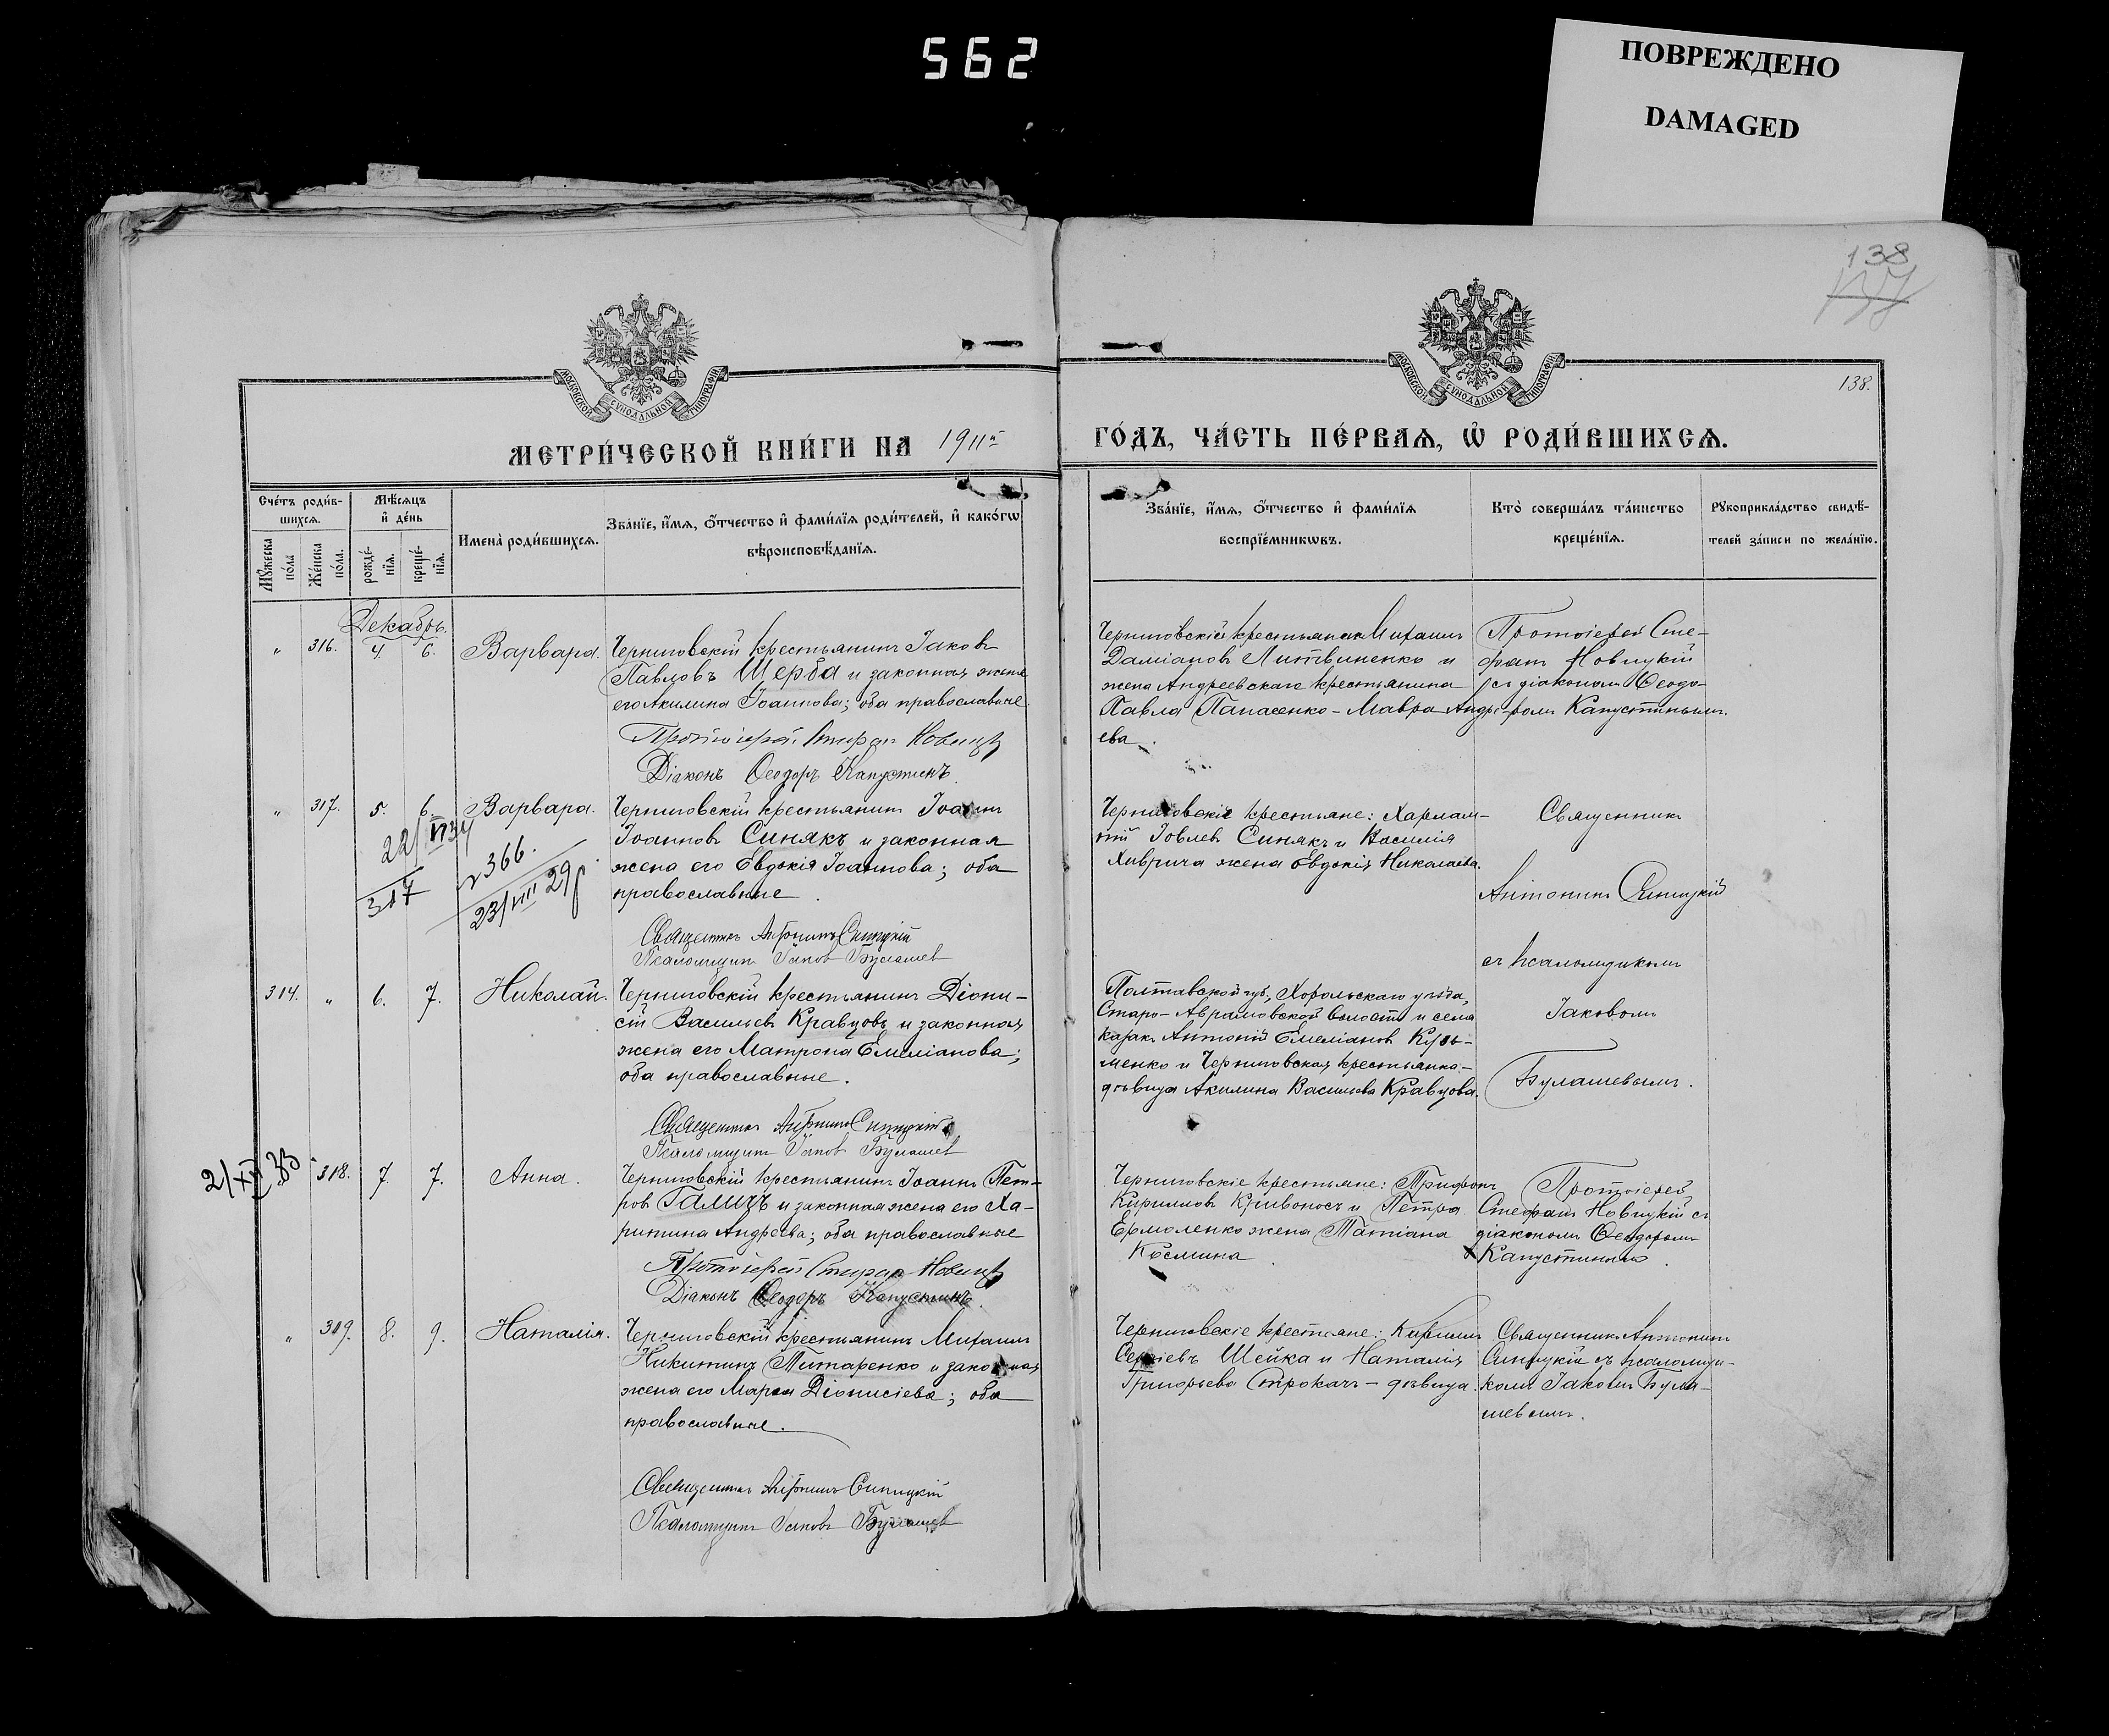 562
ПОВРЕЖДЕНО
DAMAGED
138
138.
МОСКОВСКОЙ СѴНОДАЛЬНОЙ ТИПОГРАФІИ
МОСКОВСКОЙ СѴНОДАЛЬНОЙ ТИПОГРАФІИ
МЕТРИ́ЧЕСКОЙ КНИ́ГИ НА 1911й ГО́ДЪ, ЧА́СТЬ ПЕ́РВАѦ, Ѡ҆ РОДИ́ВШИХСѦ.
Сче́тъ роди́в-
шихсѧ.
Мѣ́сѧцъ
и҆ де́нь
Мꙋ́жеска
по́ла
Же́нска
по́ла.
рожде́-
нїѧ.
креще́-
нїѧ.
Имена̀ роди́вшихсѧ.
Зва́нїе, и҆́мѧ, ѻ҆́тчество и҆ фами́лїѧ роди́телей, и҆ како́гѡ
вѣроисповѣ́данїѧ.
Зва́нїе, и҆́мѧ, ѻ҆́тчество и҆ фами́лїѧ
воспрїе́мникѡвъ.
Кто̀ соверша́лъ та́инство
креще́нїѧ.
Рꙋкоприкла́дство свидѣ́-
телей за́писи по жела́нїю.
Декабрь.
" 316. 4. 6. Варвара.
Черниговскій крестьянинъ Іаковъ
Павловъ Щерба и законная жена
его Акилина Іоаннова; оба православные.
Протоіерей Стефан Новицкій
Діаконъ Ѳеодоръ Капустинъ.
Михаилъ
Даміановъ Литвиненко и
жена Андреевскаго крестьянина
Павла Панасенко - Мавра Андре-
ева.
Протоіерей Сте-
фанъ Новицкій
съ діакономъ Ѳеодо-
ромъ Капустинымъ.
" 317. 5. 6. Варвара.
317
366.
23/VIII 29
Черниговскій крестьянинъ Іоаннъ
Іоанновъ Синякъ и законная
жена его Евдокія Іоаннова; оба
православные.
Священникъ Антонинъ Синицкій
Псаломщикъ Іаковъ Булашев
Черниговскіе крестьяне: Харлам-
пій Іовлевъ Синякъ и Василія
Хиврича жена Евдокія Николаева.
Священникъ
Антонинъ Синицкій
съ псаломщикомъ
Іаковомъ
Булашевымъ.
314. " 6. 7. Николай.
Черниговскій крестьянинъ Діони-
сій Васильевъ Кравцовъ и законная
жена его Матрона Емеліанова;
оба православные.
Священникъ Антонинъ Синицкій
Псаломщикъ Іаковъ Булашев
Полтавской губ., Хорольскаго уѣзда,
Старо-Аврамовской волости и села
казакъ Антоній Емеліановъ Кузь-
менко и Черниговская крестьянка-
дѣвица Акилина Васильева Кравцова.
2/XII 33
318. 7. 7. Анна.
Черниговскій крестьянинъ Іоаннъ Пет-
ровъ Галичъ и законная жена его Ха-
ритина Андреева; оба православные
Протоіерей Стефан Новицкій
Діаконъ Ѳеодоръ Капустинъ.
Черниговскіе крестьяне: Трифонъ
Кирилловъ Кривоносъ и Петра
Ермоленко жена Татіана
Космина.
Протоіерей
Стефанъ Новицкій съ
діакономъ Ѳеодоромъ
Капустинымъ.
" 319. 8. 9. Наталія.
Черниговскій крестьянинъ Михаилъ
Никитинъ Титаренко и законная
жена его Марія Діонисіева; оба
православные.
Священникъ Антонинъ Синицкій
Псаломщикъ Іаковъ Булашев
Черниговскіе крестьяне: Кириллъ
Сергіевъ Шейка и Наталія
Григорьева Строкачъ - дѣвица.
Священникъ Антонинъ
Синицкій съ псаломщи-
комъ Іаковомъ Була-
шевымъ.